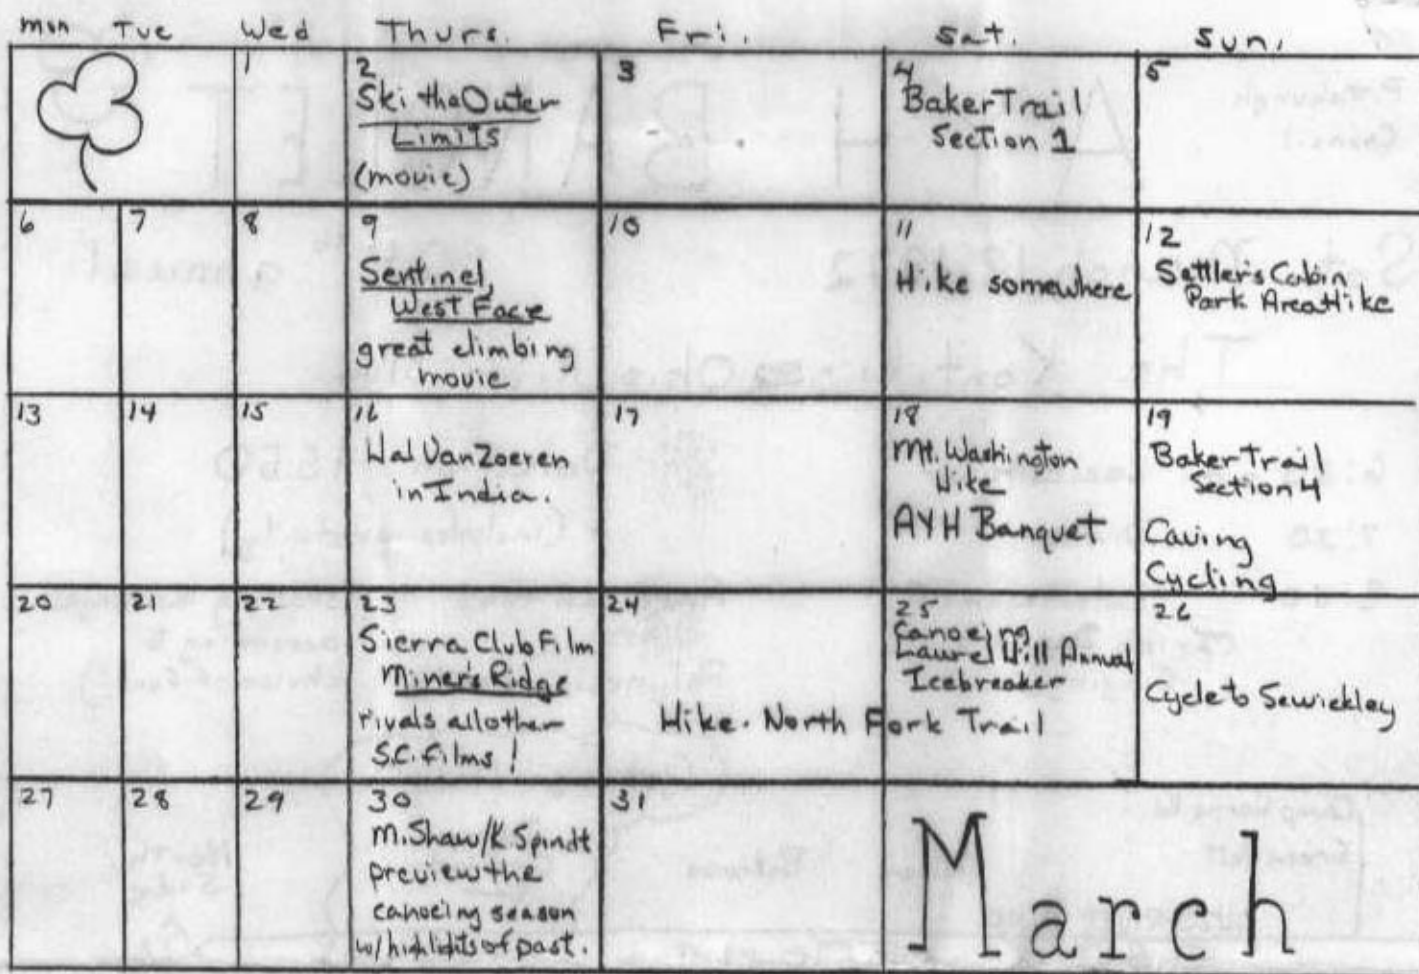 Mon Tue Wed Thurs. Fri. Sat. Sun.
1
2
Ski the Outer
Limits
(movie)
3
4
Baker Trail
Section 1
5
6
7
8
9
Sentinel,
West Face
great climbing
movie
10
11
Hike somewhere
12
Settler's Cabin
Park Area Hike
13
14
15
16
Hal Van Zoeren
in India.
17
18
Mt. Washington
Hike
AYH Banquet
19
Baker Trail
Section 4
Caving
Cycling
20
21
22
23
Sierra Club Film
Miner's Ridge
rivals all other
S.C. films!
24
25
Canoeing
Laurel Hill Annual
Icebreaker
Hike. North Fork Trail
26
Cycle to Sewickley
27
28
29
30
M. Shaw/K Spindt
preview the
canoeing season
w/highlights of past.
31
March